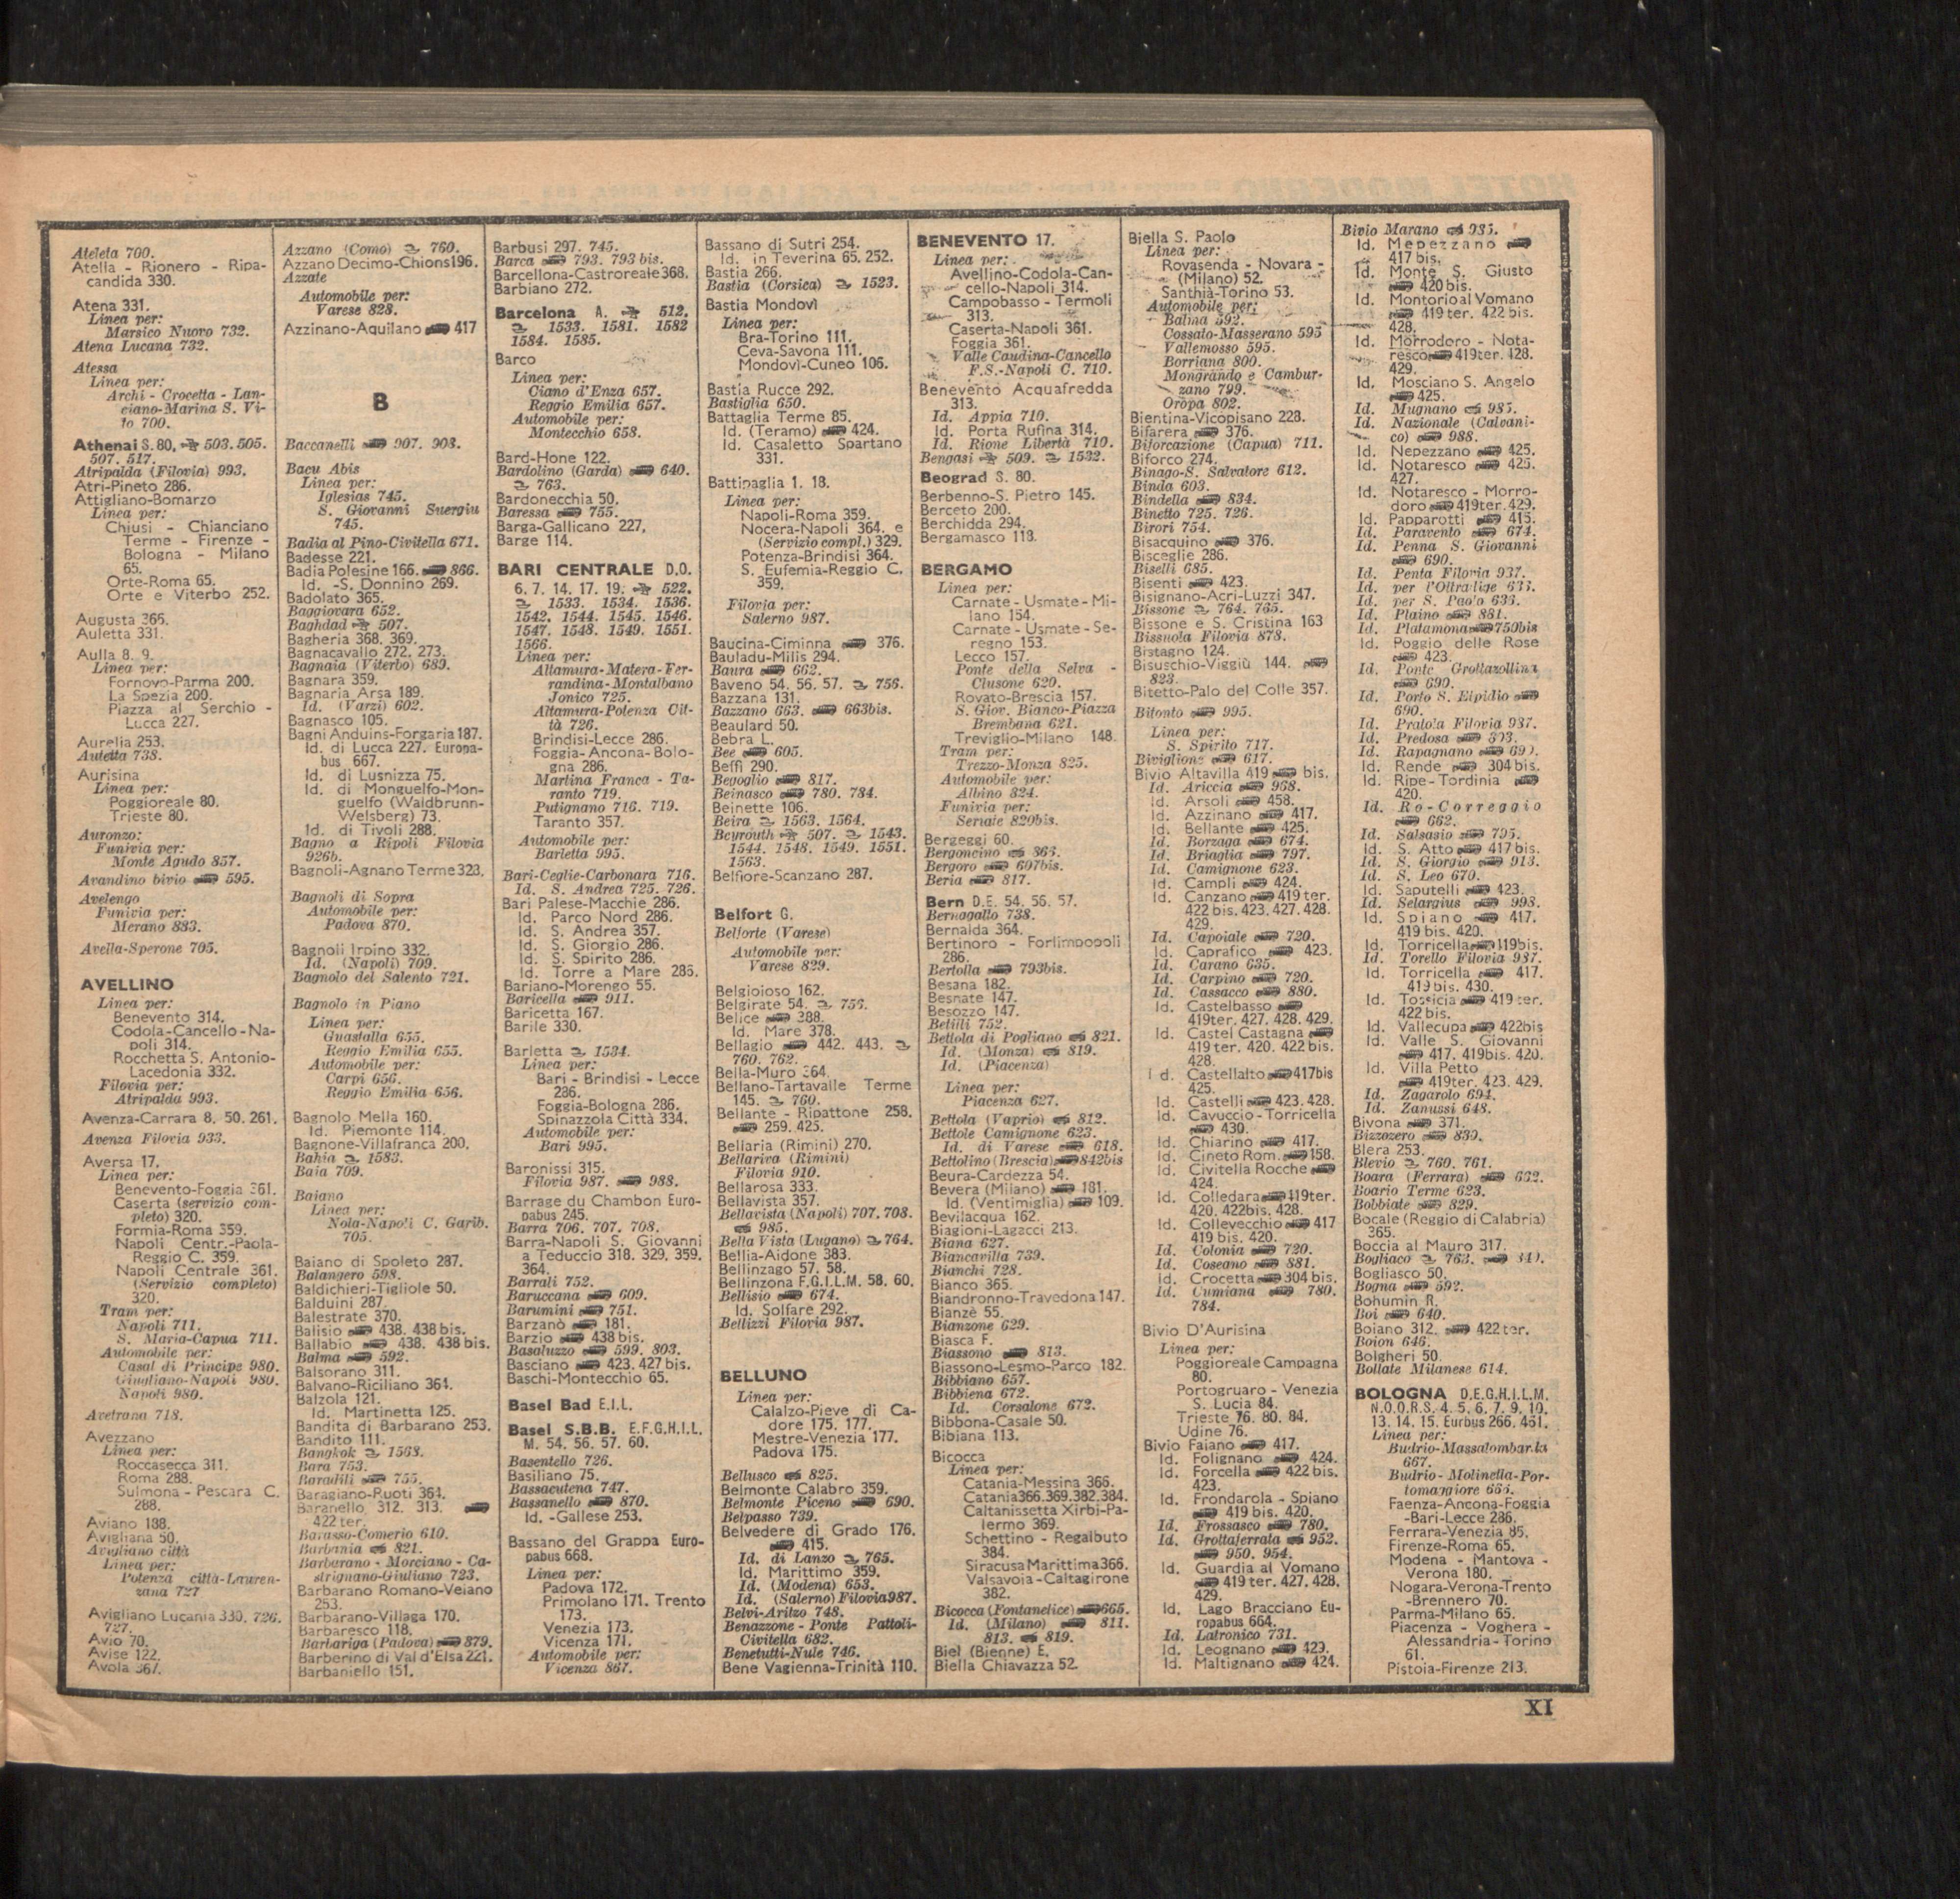 Ateleta 700.
Atella - Rionero - Ripa-
candida 330.
Atena 331.
Linea per:
Marsico Nuovo 732.
Atena Lucana 732.
Atessa
Linea per:
Archi - Crocetta - Lan-
ciano-Marina S. Vi-
to 700.
Athenai S. 80, 503. 505.
507. 517.
Atripalda (Filovia) 993.
Atri-Pineto 286.
Attigliano-Bomarzo
Linea per:
Chiusi - Chianciano
Terme - Firenze -
Bologna - Milano
65.
Orte-Roma 65.
Orte e Viterbo 252.
Augusta 366.
Auletta 331.
Aulla 8. 9.
Linea per:
Fornovo-Parma 200.
La Spezia 200.
Piazza al Serchio -
Lucca 227.
Aurelia 253.
Auletta 738.
Aurisina
Linea per:
Poggioreale 80.
Trieste 80.
Auronzo:
Funivia per:
Monte Agudo 857.
Avandino bivio 595.
Avelengo
Funivia per:
Merano 883.
Avella-Sperone 705.
AVELLINO
Linea per:
Benevento 314.
Codola-Cancello-Na-
poli 314.
Rocchetta S. Antonio-
Lacedonia 332.
Filovia per:
Atripalda 993.
Avenza-Carrara 8. 50. 261.
Avenza Filovia 933.
Aversa 17.
Linea per:
Benevento-Foggia 361.
Caserta (servizio com-
pleto) 320.
Formia-Roma 359.
Napoli Centr.-Paola-
Reggio C. 359.
Napoli Centrale 361.
(Servizio completo)
320.
Tram per:
Napoli 711.
S. Maria-Capua 711.
Automobile per:
Casal di Principe 980.
Giugliano-Napoli 980.
Napoli 980.
Avetrana 718.
Avezzano
Linea per:
Roccasecca 311.
Roma 288.
Sulmona - Pescara C.
288.
Aviano 188.
Avigliana 50.
Avigliano città
Linea per:
Potenza città-Lauren-
zana 727
Avigliano Lucania 330. 726.
727.
Avio 70.
Avise 122.
Avola 367.
Azzano (Como) 760.
Azzano Decimo-Chions196.
Azzate
Automobile per:
Varese 828.
Azzinano-Aquilano 417
B
Baccanelli 907. 908.
Bacu Abis
Linea per:
Iglesias 745.
S. Giovanni Suergiu
745.
Badia al Pino-Civitella 671.
Badesse 221.
Badia Polesine 166. 866.
Id. -S. Donnino 269.
Badolato 365.
Baggiovara 652.
Baghdad 507.
Bagheria 368. 369.
Bagnacavallo 272. 273.
Bagnaia (Viterbo) 689.
Bagnara 359.
Bagnaria Arsa 189.
Id. (Varzi) 602.
Bagnasco 105.
Bagni Anduins-Forgaria187.
Id. di Lucca 227. Europa-
bus 667.
Id. di Lusnizza 75.
Id. di Monguelfo-Mon-
guelfo (Waldbrunn-
Welsberg) 73.
Id. di Tivoli 288.
Bagno a Ripoli Filovia
926b.
Bagnoli-Agnano Terme323.
Bagnoli di Sopra
Automobile per:
Padova 870.
Bagnoli Irpino 332.
Id. (Napoli) 709.
Bagnolo del Salento 721.
Bagnolo in Piano
Linea per:
Guastalla 655.
Reggio Emilia 655.
Automobile per:
Carpi 656.
Reggio Emilia 656.
Bagnolo Mella 160.
Id. Piemonte 114.
Bagnone-Villafranca 200.
Bahia 1583.
Baia 709.
Baiano
Linea per:
Nola-Napoli C. Garib.
705.
Baiano di Spoleto 287.
Balangero 598.
Baldichieri-Tigliole 50.
Balduini 287.
Balestrate 370.
Balisio 438. 438 bis.
Ballabio 438. 438 bis.
Balma 592.
Balsorano 311.
Balvano-Riciliano 364.
Balzola 121.
Id. Martinetta 125.
Bandita di Barbarano 253.
Bandito 111.
Bangkok 1563.
Bara 753.
Baradili 755.
Baragiano-Ruoti 364.
Baranello 312. 313.
422 ter.
Barasso-Comerio 610.
Barbania 821.
Barbarano - Morciano - Ca-
strignano-Giuliano 723.
Barbarano Romano-Veiano
253.
Barbarano-Villaga 170.
Barbaresco 118.
Barbariga (Padova) 879.
Barberino di Val d'Elsa 221.
Barbaniello 151.
Barbusi 297. 745.
Barca 793. 793 bis.
Barcellona-Castroreale368.
Barbiano 272.
Barcelona A. 512.
1533. 1581. 1582
1584. 1585.
Barco
Linea per:
Ciano d'Enza 657.
Reggio Emilia 657.
Automobile per:
Montecchio 658.
Bard-Hone 122.
Bardolino (Garda) 640.
763.
Bardonecchia 50.
Baressa 755.
Barga-Gallicano 227,
Barge 114.
BARI CENTRALE D.O.
6. 7. 14. 17. 19. 522.
1533. 1534. 1536.
1542. 1544. 1545. 1546.
1547. 1548. 1549. 1551.
1566.
Linea per:
Altamura-Matera-Fer-
randina-Montalbano
Jonico 725.
Altamura-Potenza Cit-
tà 726.
Brindisi-Lecce 286.
Foggia-Ancona-Bolo-
gna 286.
Martina Franca - Ta-
ranto 719.
Putignano 716. 719.
Taranto 357.
Automobile per:
Barletta 995.
Bari-Ceglie-Carbonara 716.
Id. S. Andrea 725. 726.
Bari Palese-Macchie 286.
Id. Parco Nord 286.
Id. S. Andrea 357.
Id. S. Giorgio 286.
Id. S. Spirito 286.
Id. Torre a Mare 286.
Bariano-Morengo 55.
Baricella 911.
Baricetta 167.
Barile 330.
Barletta 1534.
Linea per:
Bari - Brindisi - Lecce
286.
Foggia-Bologna 286.
Spinazzola Città 334.
Automobile per:
Bari 995.
Baronissi 315.
Filovia 987. 988.
Barrage du Chambon Euro-
pabus 245.
Barra 706. 707. 708.
Barra-Napoli S. Giovanni
a Teduccio 318. 329. 359.
364.
Barrali 752.
Baruccana 609.
Barumini 751.
Barzanò 181.
Barzio 438 bis.
Basaluzzo 599. 803.
Basciano 423. 427 bis.
Baschi-Montecchio 65.
Basel Bad E.I.L.
Basel S.B.B. E.F.G.H.I.L.
M. 54. 56. 57. 60.
Basentello 726.
Basiliano 75.
Bassacutena 747.
Bassanello 870.
Id. -Gallese 253.
Bassano del Grappa Euro-
pabus 668.
Linea per:
Padova 172.
Primolano 171. Trento
173.
Venezia 173.
Vicenza 171.
Automobile per:
Vicenza 867.
Bassano di Sutri 254.
Id. in Teverina 65. 252.
Bastia 266.
Bastia (Corsica) 1523.
Bastia Mondovì
Linea per:
Bra-Torino 111.
Ceva-Savona 111.
Mondovì-Cuneo 106.
Bastia Rucce 292.
Bastiglia 650.
Battaglia Terme 85.
Id. (Teramo) 424.
Id. Casaletto Spartano
331.
Battipaglia 1. 18.
Linea per:
Napoli-Roma 359.
Nocera-Napoli 364. e
(Servizio compl.) 329.
Potenza-Brindisi 364.
S. Eufemia-Reggio C.
359.
Filovia per:
Salerno 987.
Baucina-Ciminna 376.
Bauladu-Milis 294.
Baura 662.
Baveno 54. 56. 57. 756.
Bazzana 131.
Bazzano 663. 663bis.
Beaulard 50.
Bebra L.
Bee 605.
Beffi 290.
Begoglio 817.
Beinasco 780. 784.
Beinette 106.
Beira 1563. 1564.
Beyrouth 507. 1543.
1544. 1548. 1549. 1551.
1563.
Belfiore-Scanzano 287.
Belfort G.
Belforte (Varese)
Automobile per:
Varese 829.
Belgioioso 162.
Belgirate 54. 756.
Belice 388.
Id. Mare 378.
Bellagio 442. 443.
760. 762.
Bella-Muro 364.
Bellano-Tartavalle Terme
145. 760.
Bellante - Ripattone 258.
259. 425.
Bellaria (Rimini) 270.
Bellariva (Rimini)
Filovia 910.
Bellarosa 333.
Bellavista 357.
Bellavista (Napoli) 707. 708.
985.
Bella Vista (Lugano) 764.
Bellia-Aidone 383.
Bellinzago 57. 58.
Bellinzona F.G.I.L.M. 58. 60.
Bellisio 674.
Id. Solfare 292.
Bellizzi Filovia 987.
BELLUNO
Linea per:
Calalzo-Pieve di Ca-
dore 175. 177.
Mestre-Venezia 177.
Padova 175.
Bellusco 825.
Belmonte Calabro 359.
Belmonte Piceno 690.
Belpasso 739.
Belvedere di Grado 176.
415.
Id. di Lanzo 765.
Id. Marittimo 359.
Id. (Modena) 653.
Id. (Salerno) Filovia987.
Belvì-Aritzo 748.
Benazzone - Ponte Pattoli-
Civitella 682.
Benetutti-Nule 746.
Bene Vagienna-Trinità 110.
BENEVENTO 17.
Linea per:
Avellino-Codola-Can-
cello-Napoli 314.
Campobasso - Termoli
313.
Caserta-Napoli 361.
Foggia 361.
Valle Caudina-Cancello
F.S.-Napoli C. 710.
Benevento Acquafredda
313.
Id. Appia 710.
Id. Porta Rufina 314.
Id. Rione Libertà 710.
Bengasi 509. 1532.
Beograd S. 80.
Berbenno-S. Pietro 145.
Berceto 200.
Berchidda 294.
Bergamasco 113.
BERGAMO
Linea per:
Carnate - Usmate - Mi-
lano 154.
Carnate - Usmate - Se-
regno 153.
Lecco 157.
Ponte della Selva -
Clusone 620.
Rovato-Brescia 157.
S. Giov. Bianco-Piazza
Brembana 621.
Treviglio-Milano 148.
Tram per:
Trezzo-Monza 825.
Automobile per:
Albino 824.
Funivia per:
Seriate 820bis.
Bergeggi 60.
Bergoncino 366.
Bergoro 607bis.
Beria 817.
Bern D.E. 54. 56. 57.
Bernagallo 738.
Bernalda 364.
Bertinoro - Forlimpopoli
286.
Bertolla 793bis.
Besana 182.
Besnate 147.
Besozzo 147.
Betilli 752.
Bettola di Pogliano 821.
Id. (Monza) 819.
Id. (Piacenza)
Linea per:
Piacenza 627.
Bettola (Vaprio) 812.
Bettole Camignone 623.
Id. di Varese 618.
Bettolino (Brescia) 842bis
Beura-Cardezza 54.
Bevera (Milano) 181.
Id. (Ventimiglia) 109.
Bevilacqua 162.
Biagioni-Lagacci 213.
Biana 627.
Biancavilla 739.
Bianchi 728.
Bianco 365.
Biandronno-Travedona 147.
Bianzè 55.
Bianzone 629.
Biasca F.
Biassono 813.
Biassono-Lesmo-Parco 182.
Bibbiano 657.
Bibbiena 672.
Id. Corsalone 672.
Bibbona-Casale 50.
Bibiana 113.
Bicocca
Linea per:
Catania-Messina 366.
Catania366.369.382.384.
Caltanissetta Xirbi-Pa-
lermo 369.
Schettino - Regalbuto
384.
Siracusa Marittima366.
Valsavoia-Caltagirone
382.
Bicocca (Fontanelice) 665.
Id. (Milano) 811.
813. 819.
Biel (Bienne) E.
Biella Chiavazza 52.
Biella S. Paolo
Linea per:
Rovasenda - Novara -
(Milano) 52.
Santhià-Torino 53.
Automobile per:
Balma 592.
Cossato-Masserano 595
Vallemosso 595.
Borriana 800.
Mongrando e Cambur-
zano 799.
Oropa 802.
Bientina-Vicopisano 228.
Bifarera 376.
Biforcazione (Capua) 711.
Biforco 274.
Binago-S. Salvatore 612.
Binda 603.
Bindella 834.
Binetto 725. 726.
Birori 754.
Bisacquino 376.
Bisceglie 286.
Biselli 685.
Bisenti 423.
Bisignano-Acri-Luzzi 347.
Bissone 764. 765.
Bissone e S. Cristina 163
Bissuola Filovia 878.
Bistagno 124.
Bisuschio-Viggiù 144.
823.
Bitetto-Palo del Colle 357.
Bitonto 995.
Linea per:
S. Spirito 717.
Biviglione 617.
Bivio Altavilla 419 bis.
Id. Ariccia 968.
Id. Arsoli 458.
Id. Azzinano 417.
Id. Bellante 425.
Id. Borzaga 674.
Id. Briaglia 797.
Id. Camignone 623.
Id. Campli 424.
Id. Canzano 419 ter.
422 bis. 423. 427. 428.
429.
Id. Capoiale 720.
Id. Caprafico 423.
Id. Carano 635.
Id. Carpino 720.
Id. Cassacco 880.
Id. Castelbasso
419ter. 427. 428. 429.
Id. Castel Castagna
419 ter. 420. 422 bis.
428.
Id. Castellalto 417bis
425.
Id. Castelli 423. 428.
Id. Cavuccio-Torricella
430.
Id. Chiarino 417.
Id. Cineto Rom. 158.
Id. Civitella Rocche
424.
Id. Colledara 419ter.
420. 422bis. 428.
Id. Collevecchio 417
419 bis. 420.
Id. Colonia 720.
Id. Coseano 881.
Id. Crocetta 304 bis.
Id. Cumiana 780.
784.
Bivio D'Aurisina
Linea per:
Poggioreale Campagna
80.
Portogruaro - Venezia
S. Lucia 84.
Trieste 76. 80. 84.
Udine 76.
Bivio Faiano 417.
Id. Folignano 424.
Id. Forcella 422 bis.
423.
Id. Frondarola - Spiano
419 bis. 420.
Id. Frossasco 780.
Id. Grottaferrata 952.
950. 954.
Id. Guardia al Vomano
419 ter. 427. 428.
429.
Id. Lago Bracciano Eu-
ropabus 664.
Id. Latronico 731.
Id. Leognano 423.
Id. Maltignano 424.
Bivio Marano 985.
Id. Mepezzano
417 bis.
Id. Monte S. Giusto
420 bis.
Id. Montorio al Vomano
419 ter. 422 bis.
428.
Id. Morrodoro - Nota-
resco 419ter. 428.
429.
Id. Mosciano S. Angelo
425.
Id. Mugnano 985.
Id. Nazionale (Calvani-
co) 988.
Id. Nepezzano 425.
Id. Notaresco 425.
427.
Id. Notaresco - Morro-
doro 419ter. 429.
Id. Papparotti 415.
Id. Paravento 674.
Id. Penna S. Giovanni
690.
Id. Penta Filovia 937.
Id. per l'Oltradige 633.
Id. per S. Paolo 633.
Id. Plaino 881.
Id. Platamona 750bis
Id. Poggio delle Rose
423.
Id. Ponte Grottazollina
690.
Id. Porto S. Elpidio
690.
Id. Pratola Filovia 987.
Id. Predosa 803.
Id. Rapagnano 690.
Id. Rende 304 bis.
Id. Ripe-Tordinia
420.
Id. Ro-Correggio
662.
Id. Salsasio 795.
Id. S. Atto 417 bis.
Id. S. Giorgio 913.
Id. S. Leo 670.
Id. Saputelli 423.
Id. Selargius 998.
Id. Spiano 417.
419 bis. 420.
Id. Torricella 419bis.
Id. Torello Filovia 987.
Id. Torricella 417.
419 bis. 430.
Id. Tossicia 419 ter.
422 bis.
Id. Vallecupa 422bis
Id. Valle S. Giovanni
417. 419bis. 420.
Id. Villa Petto
419ter. 423. 429.
Id. Zagarolo 694.
Id. Zanussi 648.
Bivona 371.
Bizzozero 830.
Blera 253.
Blevio 760. 761.
Boara (Ferrara) 662.
Boario Terme 623.
Bobbiate 829.
Bocale (Reggio di Calabria)
365.
Boccia al Mauro 317.
Bogliaco 763. 840.
Bogliasco 50.
Bogna 592.
Bohumin R.
Boi 640.
Boiano 312. 422 ter.
Boion 646.
Bolgheri 50.
Bollate Milanese 614.
BOLOGNA D.E.G.H.I.L.M.
N.O.O.R.S. 4. 5. 6. 7. 9. 10.
13. 14. 15. Eurbus 266. 461.
Linea per:
Budrio-Massalombarda
667.
Budrio-Molinella-Por-
tomaggiore 666.
Faenza-Ancona-Foggia
-Bari-Lecce 286.
Ferrara-Venezia 85.
Firenze-Roma 65.
Modena - Mantova -
Verona 180.
Nogara-Verona-Trento
-Brennero 70.
Parma-Milano 65.
Piacenza - Voghera -
Alessandria - Torino
61.
Pistoia-Firenze 213.
XI